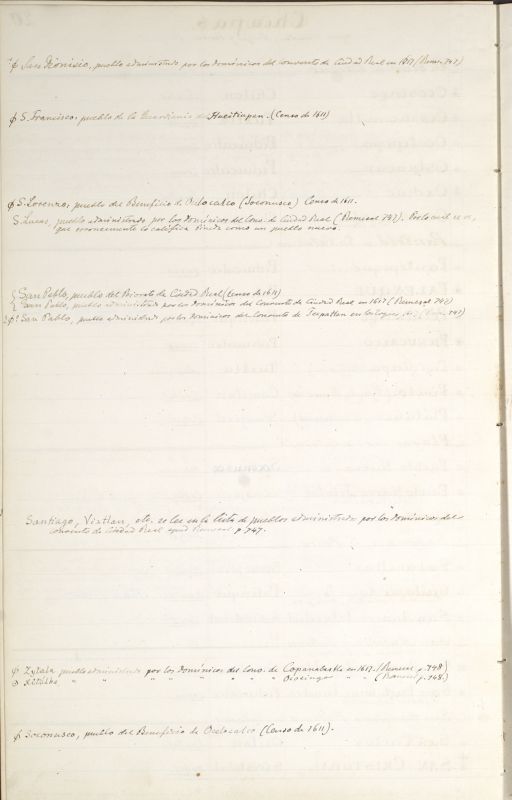 φ San Dionisio, pueblo administrado por los dominicos del convento de Ciudad Real en 1617 (Remes. 747)
φ S. Francisco, pueblo de la Guardiania de Hueitiupan. (Censo de 1611)
φ S. Lorenzo, pueblo del Beneficio de Ocelocalco (Soconusco) Censo de 1611.
S. Lucas, pueblo administrado por los dominicos del Conv. de Ciudad Real (Remesal 747). Por lo cual se ve,
que erroneamente lo califica Pineda como un pueblo nuevo.
San Pablo, pueblo del Priorato de Ciudad Real (Censo de 1611)
San Pablo, pueblo administrado por los dominicos del Convento de Ciudad Real en 1617 (Remesal 747)
φ San Pablo, pueblo administrado por los dominicos del Convento de Tecpatlan en los Zoques (Remes. 747)
Santiago, Vixtlan, etc. se lee en la lista de pueblos administrados por los dominicos del
convento de Ciudad Real apud Remesal p. 747.
φ Zitala pueblo administrado por los dominicos del Conv. de Copanabastla en 1617. (Remesal p. 748)
φ " " " " " " " Ocosingo " " (Remesal p. 748.)
φ Soconusco, pueblo del Beneficio de Ocelocalco (Censo de 1611).